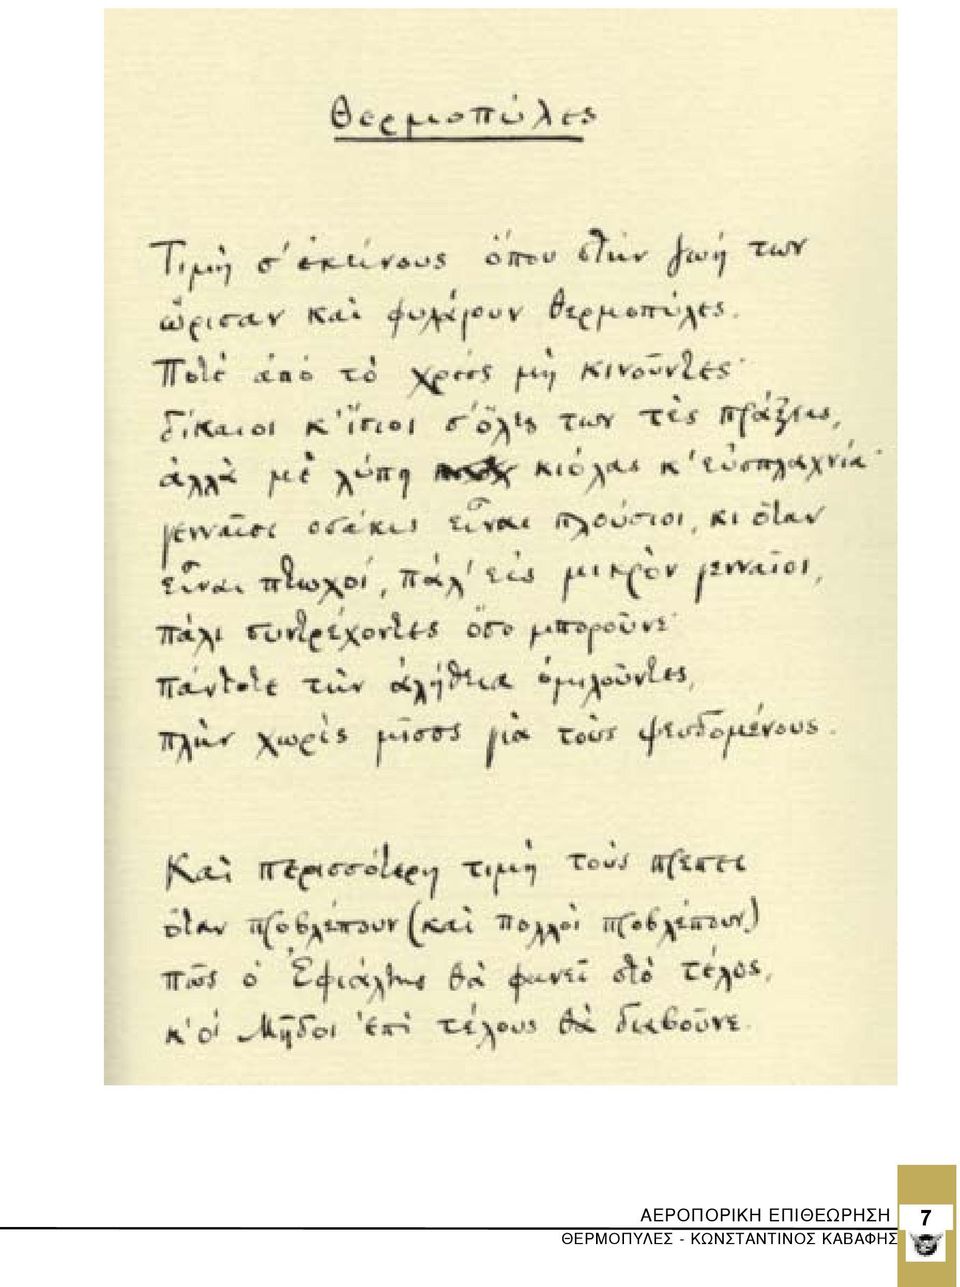 Θερμοπύλες
Τιμὴ σ' ἐκείνους ὅπου στὴν ζωή των
ὥρισαν καὶ φυλάγουν Θερμοπύλες.
Ποτὲ ἀπὸ τὸ χρέος μὴ κινοῦντες·
δίκαιοι κ' ἴσιοι σ' ὅλες των τὲς πράξεις,
ἀλλὰ μὲ λύπη κιόλας κ' εὐσπλαχνία·
γενναῖοι ὁσάκις εἶναι πλούσιοι, κι ὅταν
εἶναι πτωχοί, πάλ' εἰς μικρὸν γενναῖοι,
πάλι συντρέχοντες ὅσο μποροῦνε·
πάντοτε τὴν ἀλήθεια ὁμιλοῦντες,
πλὴν χωρὶς μῖσος γιὰ τοὺς ψευδομένους.
Καὶ περισσότερη τιμὴ τοὺς πρέπει
ὅταν προβλέπουν (καὶ πολλοὶ προβλέπουν)
πῶς ὁ Ἐφιάλτης θὰ φανεῖ στὸ τέλος,
κ' οἱ Μῆδοι ἐπὶ τέλους θὰ διαβοῦνε.
ΑΕΡΟΠΟΡΙΚΗ ΕΠΙΘΕΩΡΗΣΗ 7
ΘΕΡΜΟΠΥΛΕΣ - ΚΩΝΣΤΑΝΤΙΝΟΣ ΚΑΒΑΦΗΣ